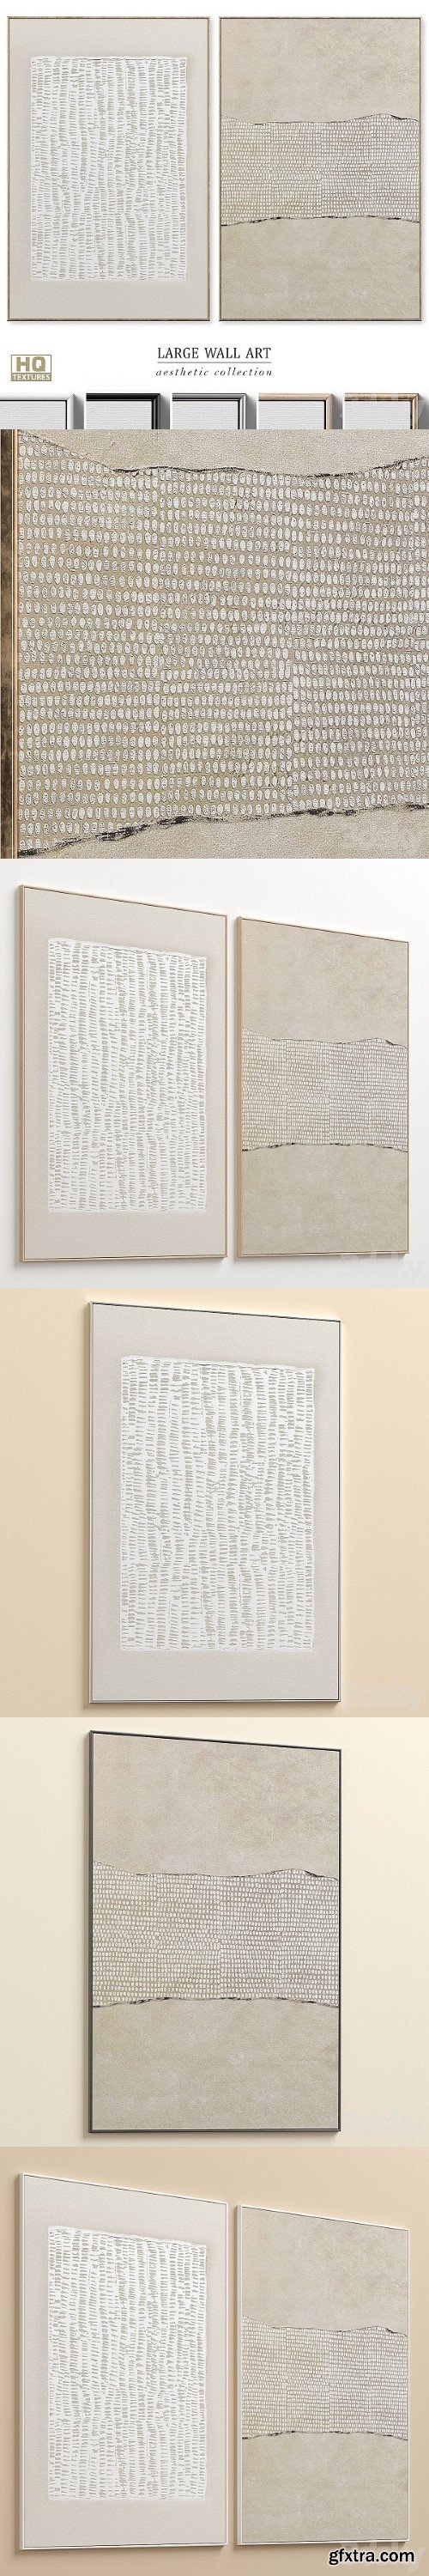 HQ
TEXTURES
LARGE WALL ART
aesthetic collection
gfxtra.com